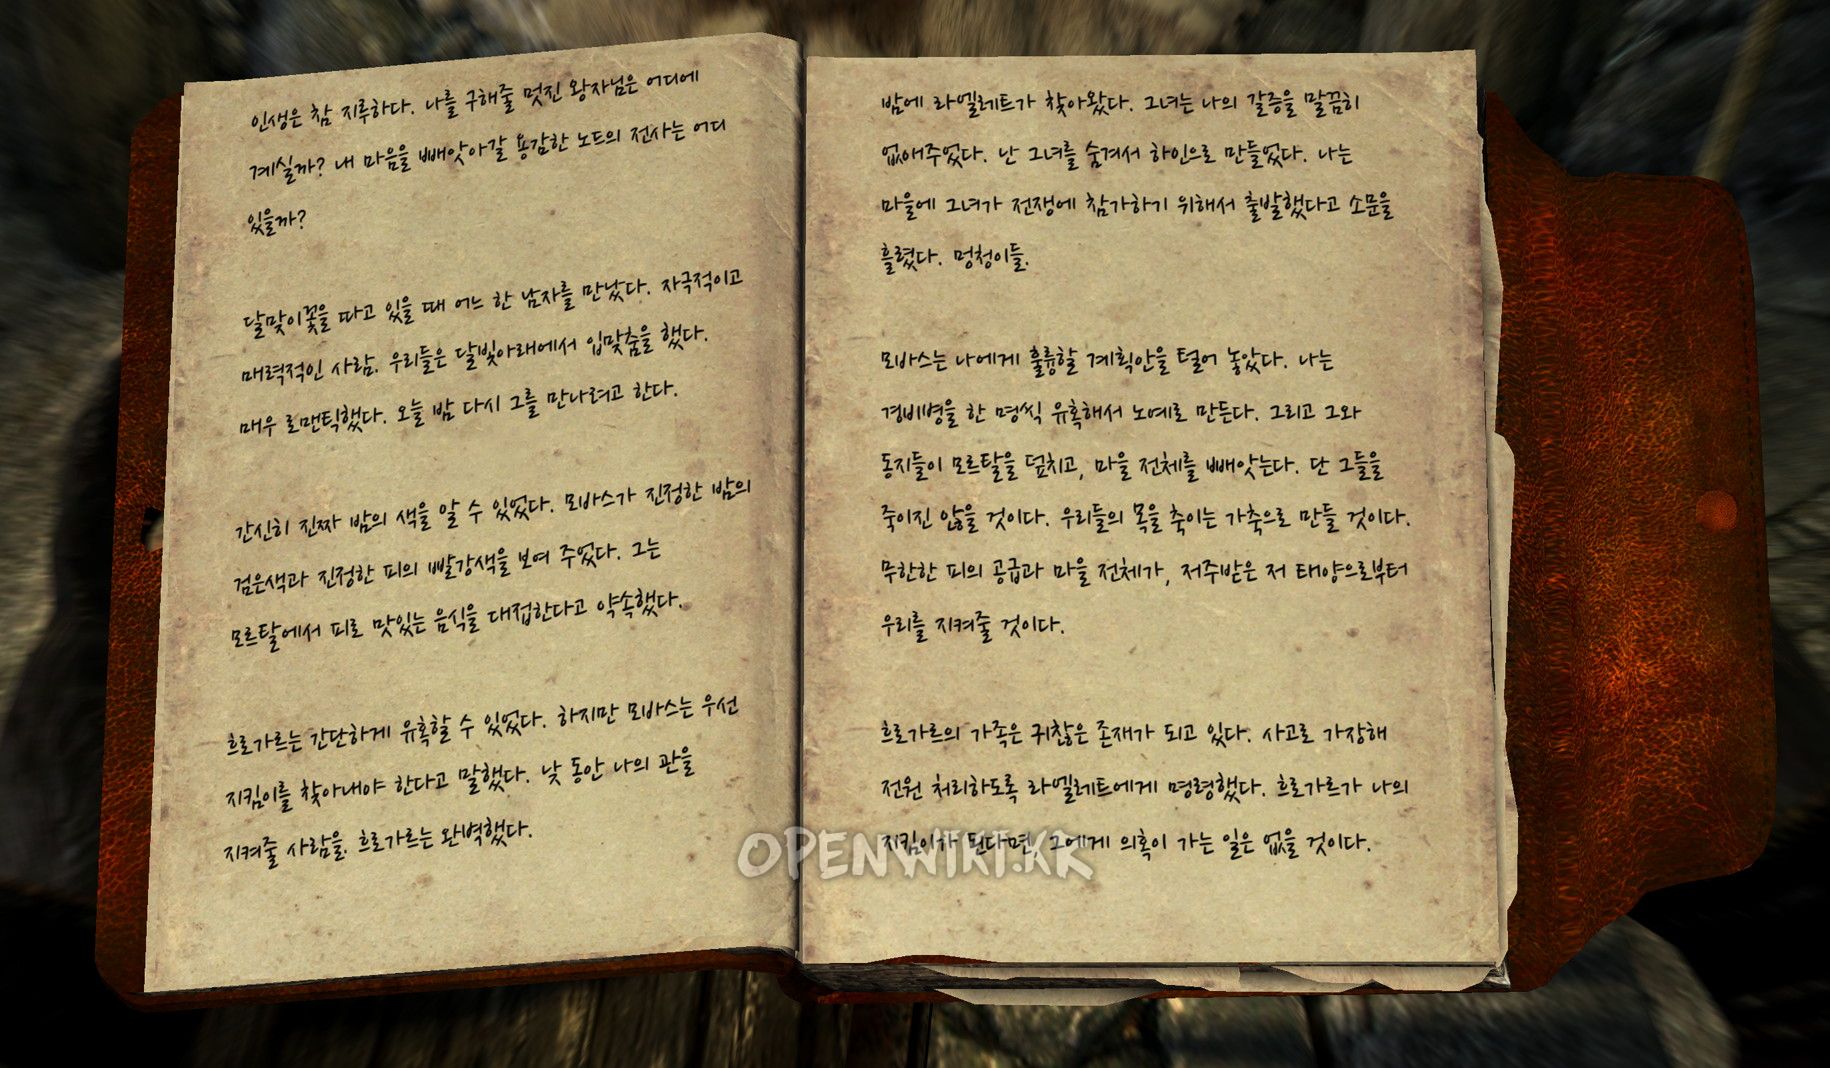 인생은 참 지루하다. 나를 구해줄 멋진 왕자님은 어디에
계실까? 내 마음을 빼앗아갈 용감한 노드의 전사는 어디
있을까?
달맞이꽃을 따고 있을 때 어느 한 남자를 만났다. 자극적이고
매력적인 사람. 우리들은 달빛아래에서 입맞춤을 했다.
매우 로맨틱했다. 오늘 밤 다시 그를 만나려고 한다.
간신히 진짜 밤의 색을 알 수 있었다. 모바스가 진정한 밤의
검은색과 진정한 피의 빨강색을 보여 주었다. 그는
모르탈에서 피로 맛있는 음식을 대접한다고 약속했다.
흐로가르는 간단하게 유혹할 수 있었다. 하지만 모바스는 우선
지킴이를 찾아내야 한다고 말했다. 낮 동안 나의 관을
지켜줄 사람을. 흐로가르는 완벽했다.
밤에 라엘레트가 찾아왔다. 그녀는 나의 갈증을 말끔히
없애주었다. 난 그녀를 숨겨서 하인으로 만들었다. 나는
마을에 그녀가 전쟁에 참가하기 위해서 출발했다고 소문을
흘렸다. 멍청이들.
모바스는 나에게 훌륭할 계획안을 털어 놓았다. 나는
경비병을 한 명씩 유혹해서 노예로 만든다. 그리고 그와
동지들이 모르탈을 덮치고, 마을 전체를 빼앗는다. 단 그들을
죽이진 않을 것이다. 우리들의 목을 축이는 가축으로 만들 것이다.
무한한 피의 공급과 마을 전체가, 저주받은 저 태양으로부터
우리를 지켜줄 것이다.
흐로가르의 가족은 귀찮은 존재가 되고 있다. 사고로 가장해
전원 처리하도록 라엘레트에게 명령했다. 흐로가르가 나의
지킴이가 된다면, 그에게 의혹이 가는 일은 없을 것이다.
OPENWIKI.KR